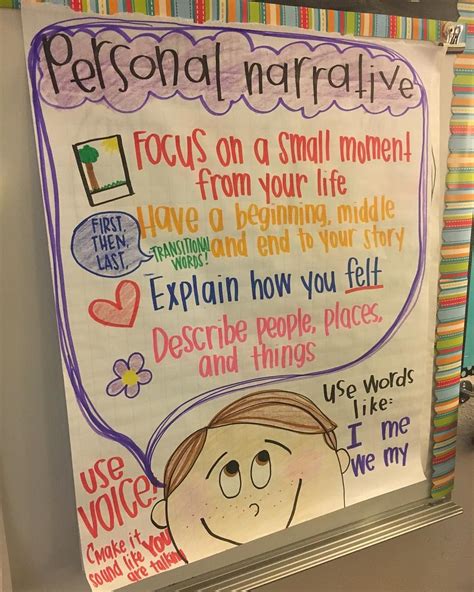 Personal narrative
FOCUS on a small moment
from your life
FIRST,
THEN,
LAST,
TRANSITIONAL
WORDS!
Have a beginning, middle
and end to your story
Explain how you felt
Describe people, places,
and things
use words
like:
I me
we my
USE
VOICE!
(make it
sound like YOU
are talking